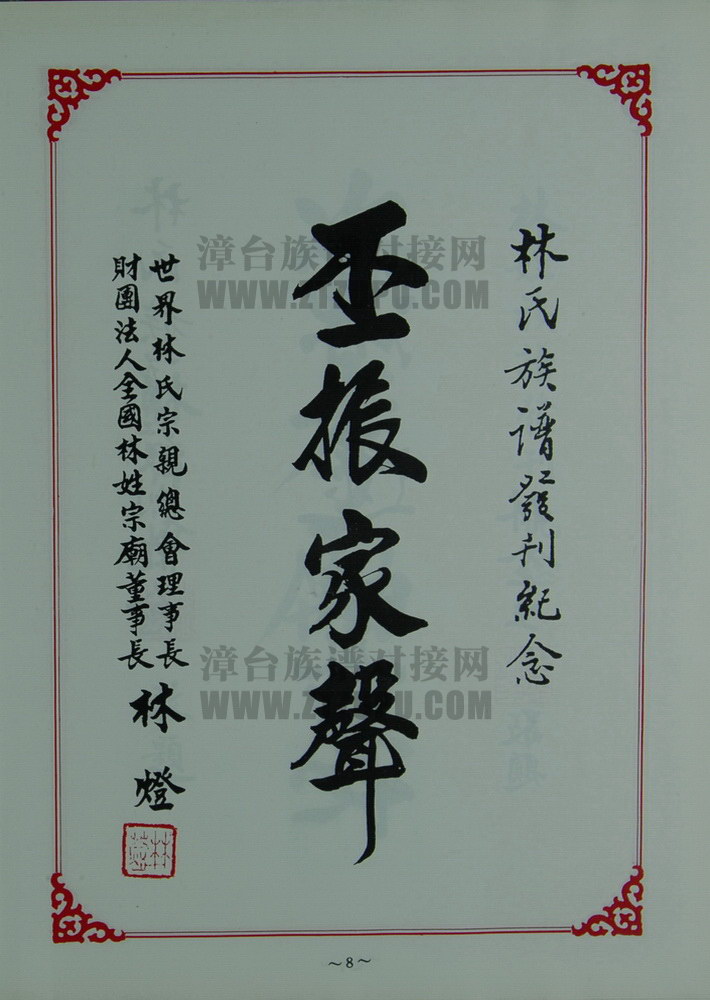 林氏族譜發刊紀念
丕振家聲
世界林氏宗親總會理事長
財團法人全國林姓宗廟董事長
林燈
林燈
~8~
漳台族谱对接网
WWW.ZTZUPU.COM
漳台族谱对接网
WWW.ZTZUPU.COM